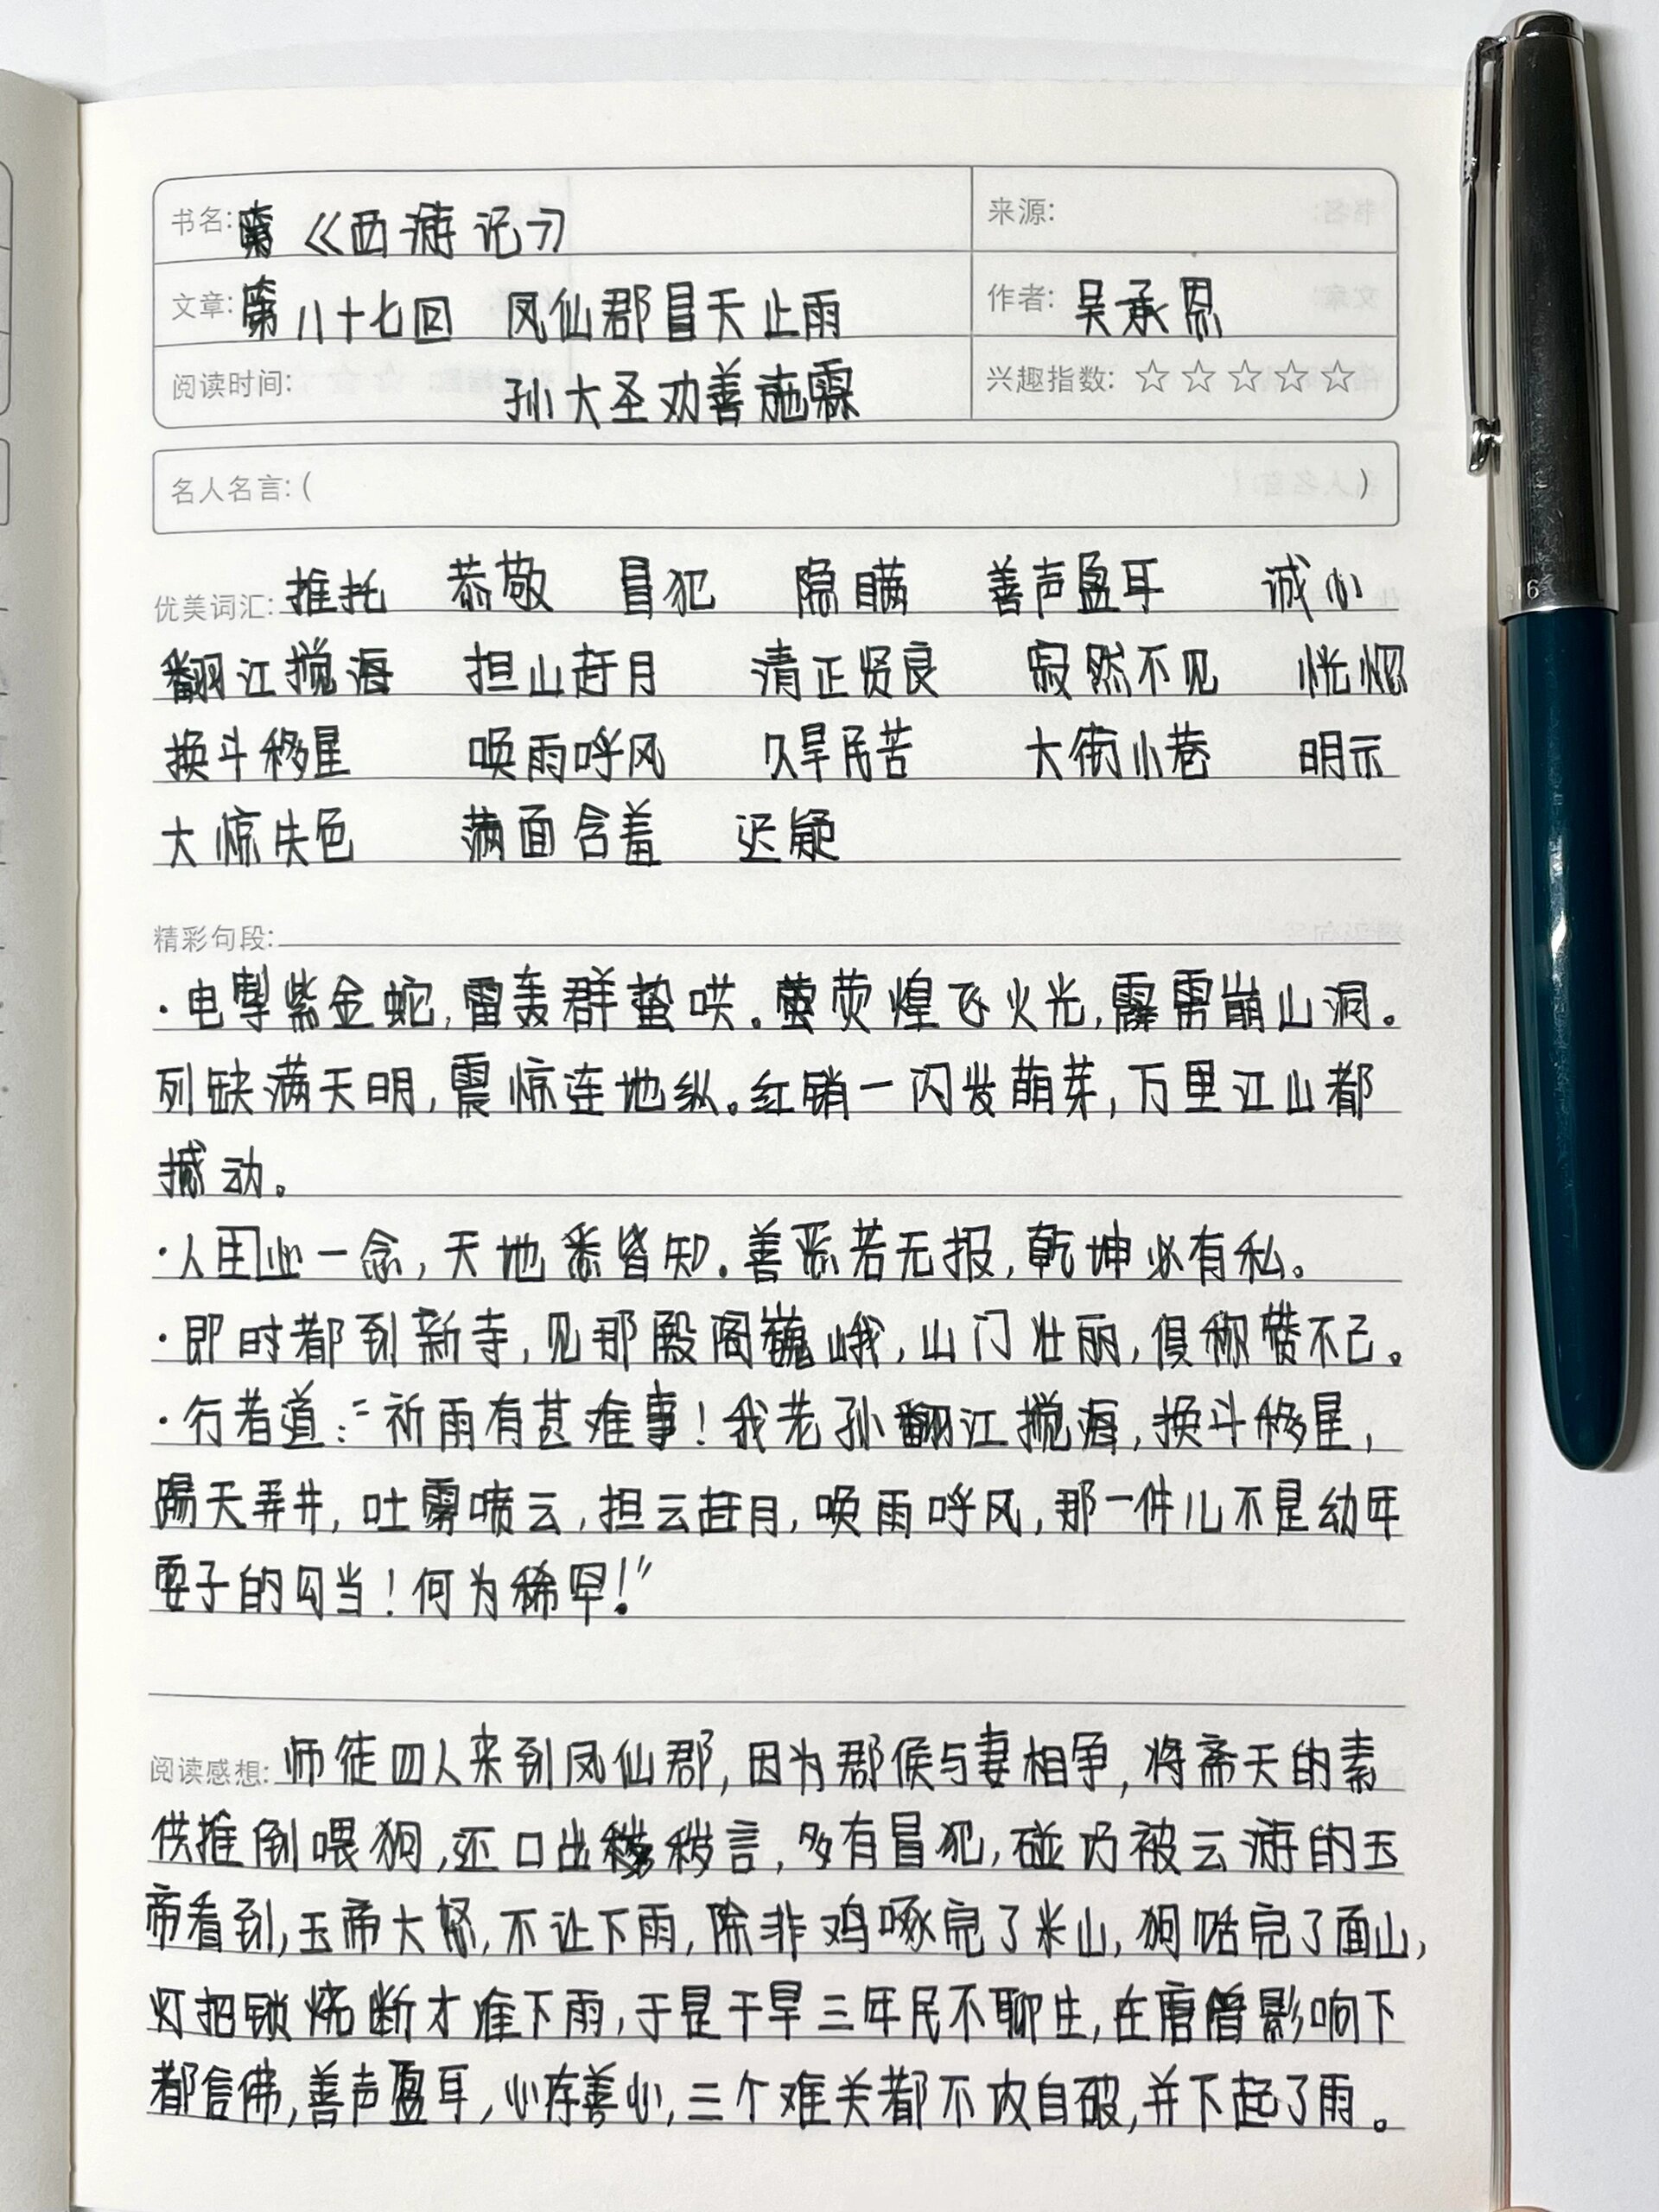 书名: 《西游记》 来源:
文章: 第八十七回 凤仙郡冒天止雨 作者: 吴承恩
阅读时间: 孙大圣劝善施霖 兴趣指数: ☆☆☆☆☆
名人名言: ( )
优美词汇: 推托 恭敬 冒犯 隐瞒 善声盈耳 诚心
翻江搅海 担山赶月 清正贤良 寂然不见 恍惚
换斗移星 唤雨呼风 久旱民苦 大街小巷 明示
大惊失色 满面含羞 迟疑
精彩句段:
·电掣紫金蛇,雷轰群蛰哄。萤荧煌飞火光,霹雳崩山洞。
列缺满天明,震惊连地纵。红销一闪发萌芽,万里江山都
撼动。
·人心一念,天地悉皆知。善恶若无报,乾坤必有私。
·即时都到新寺,见那殿阁巍峨,山门壮丽,俱称赞不已。
·行者道:“祈雨有甚难事!我老孙翻江搅海,换斗移星,
踢天弄井,吐雾喷云,担云赶月,唤雨呼风,那一件儿不是幼年
耍子的勾当!何为稀罕!”
阅读感想: 师徒四人来到凤仙郡,因为郡侯与妻相争,将斋天的素
供推倒喂狗,还口出秽言,多有冒犯,碰巧被云游的玉
帝看到,玉帝大怒,不让下雨,除非鸡啄完了米山,狗舔完了面山,
灯把锁烧断才准下雨,于是干旱三年民不聊生,在唐僧影响下
都信佛,善声盈耳,心存善心,三个难关都不攻自破,并下起了雨。
816